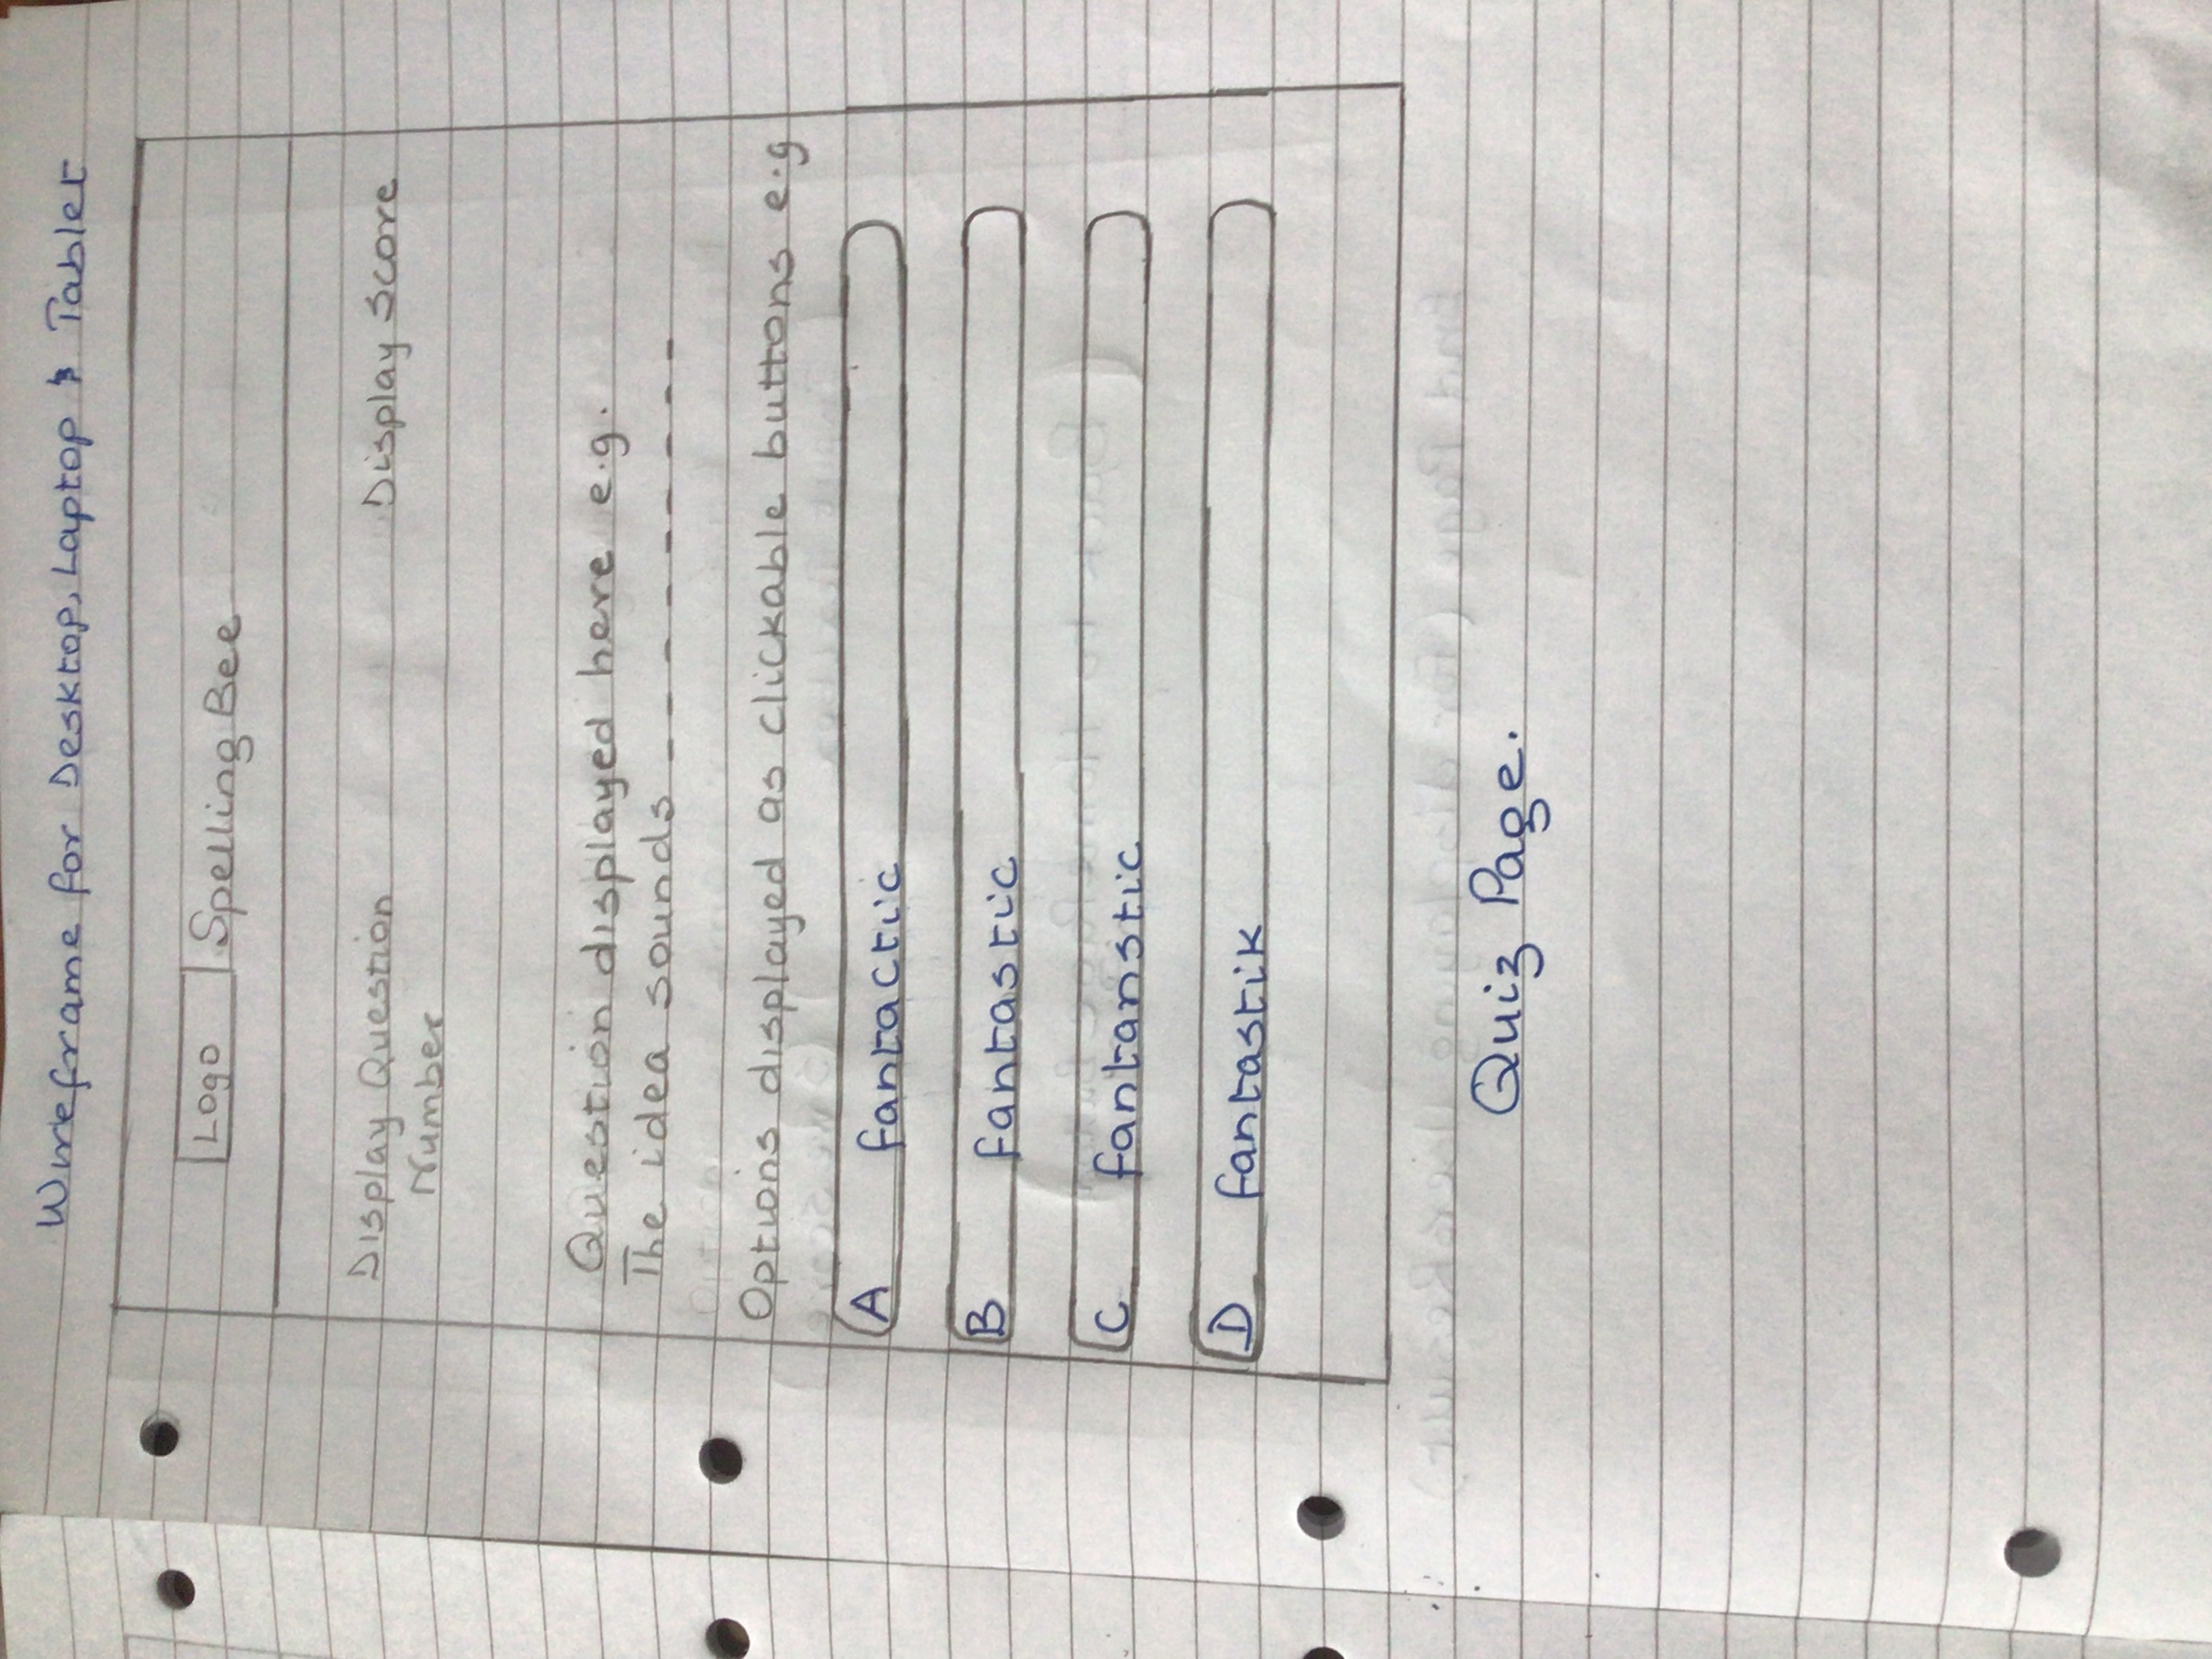 Wireframe for Desktop, Laptop & Tablet
Logo Spelling Bee
Display Question Display Score
Number
Question displayed here e.g.
The idea sounds _ _ _ _ _ _ _ _ _
Options displayed as clickable buttons e.g
A fantactic
B fantastic
C fantanstic
D fantastik
Quiz Page.